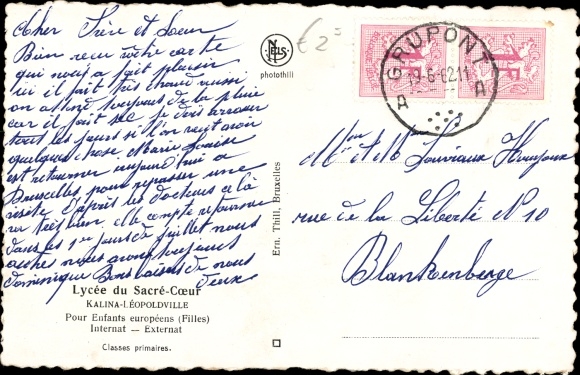 Cher Frère et Soeur
Bien reçu votre carte
qui nous a fait plaisir
ici il fait très chaud aussi
on attend toujours de la pluie
car il fait sec je dois arroser
tous les jours si l'on veut avoir
quelque chose Marie Louise
est retourner aujourd'hui a
Bruxelles pour repasser une
visite d'après les docteurs cela
va très bien elle compte retourner
dans les 1er jours de juillet nous
autres nous avons toujours
Dominique Bons baisers de nous
deux
Lycée du Sacré-Cœur
KALINA-LÉOPOLDVILLE
Pour Enfants européens (Filles)
Internat — Externat
Classes primaires.
NELS
photothill
Ern. Thill, Bruxelles
€ 2
GRUPONT
19-6-62 11
A A
Mr et Me
rue de la Liberté N 10
Blankenberge